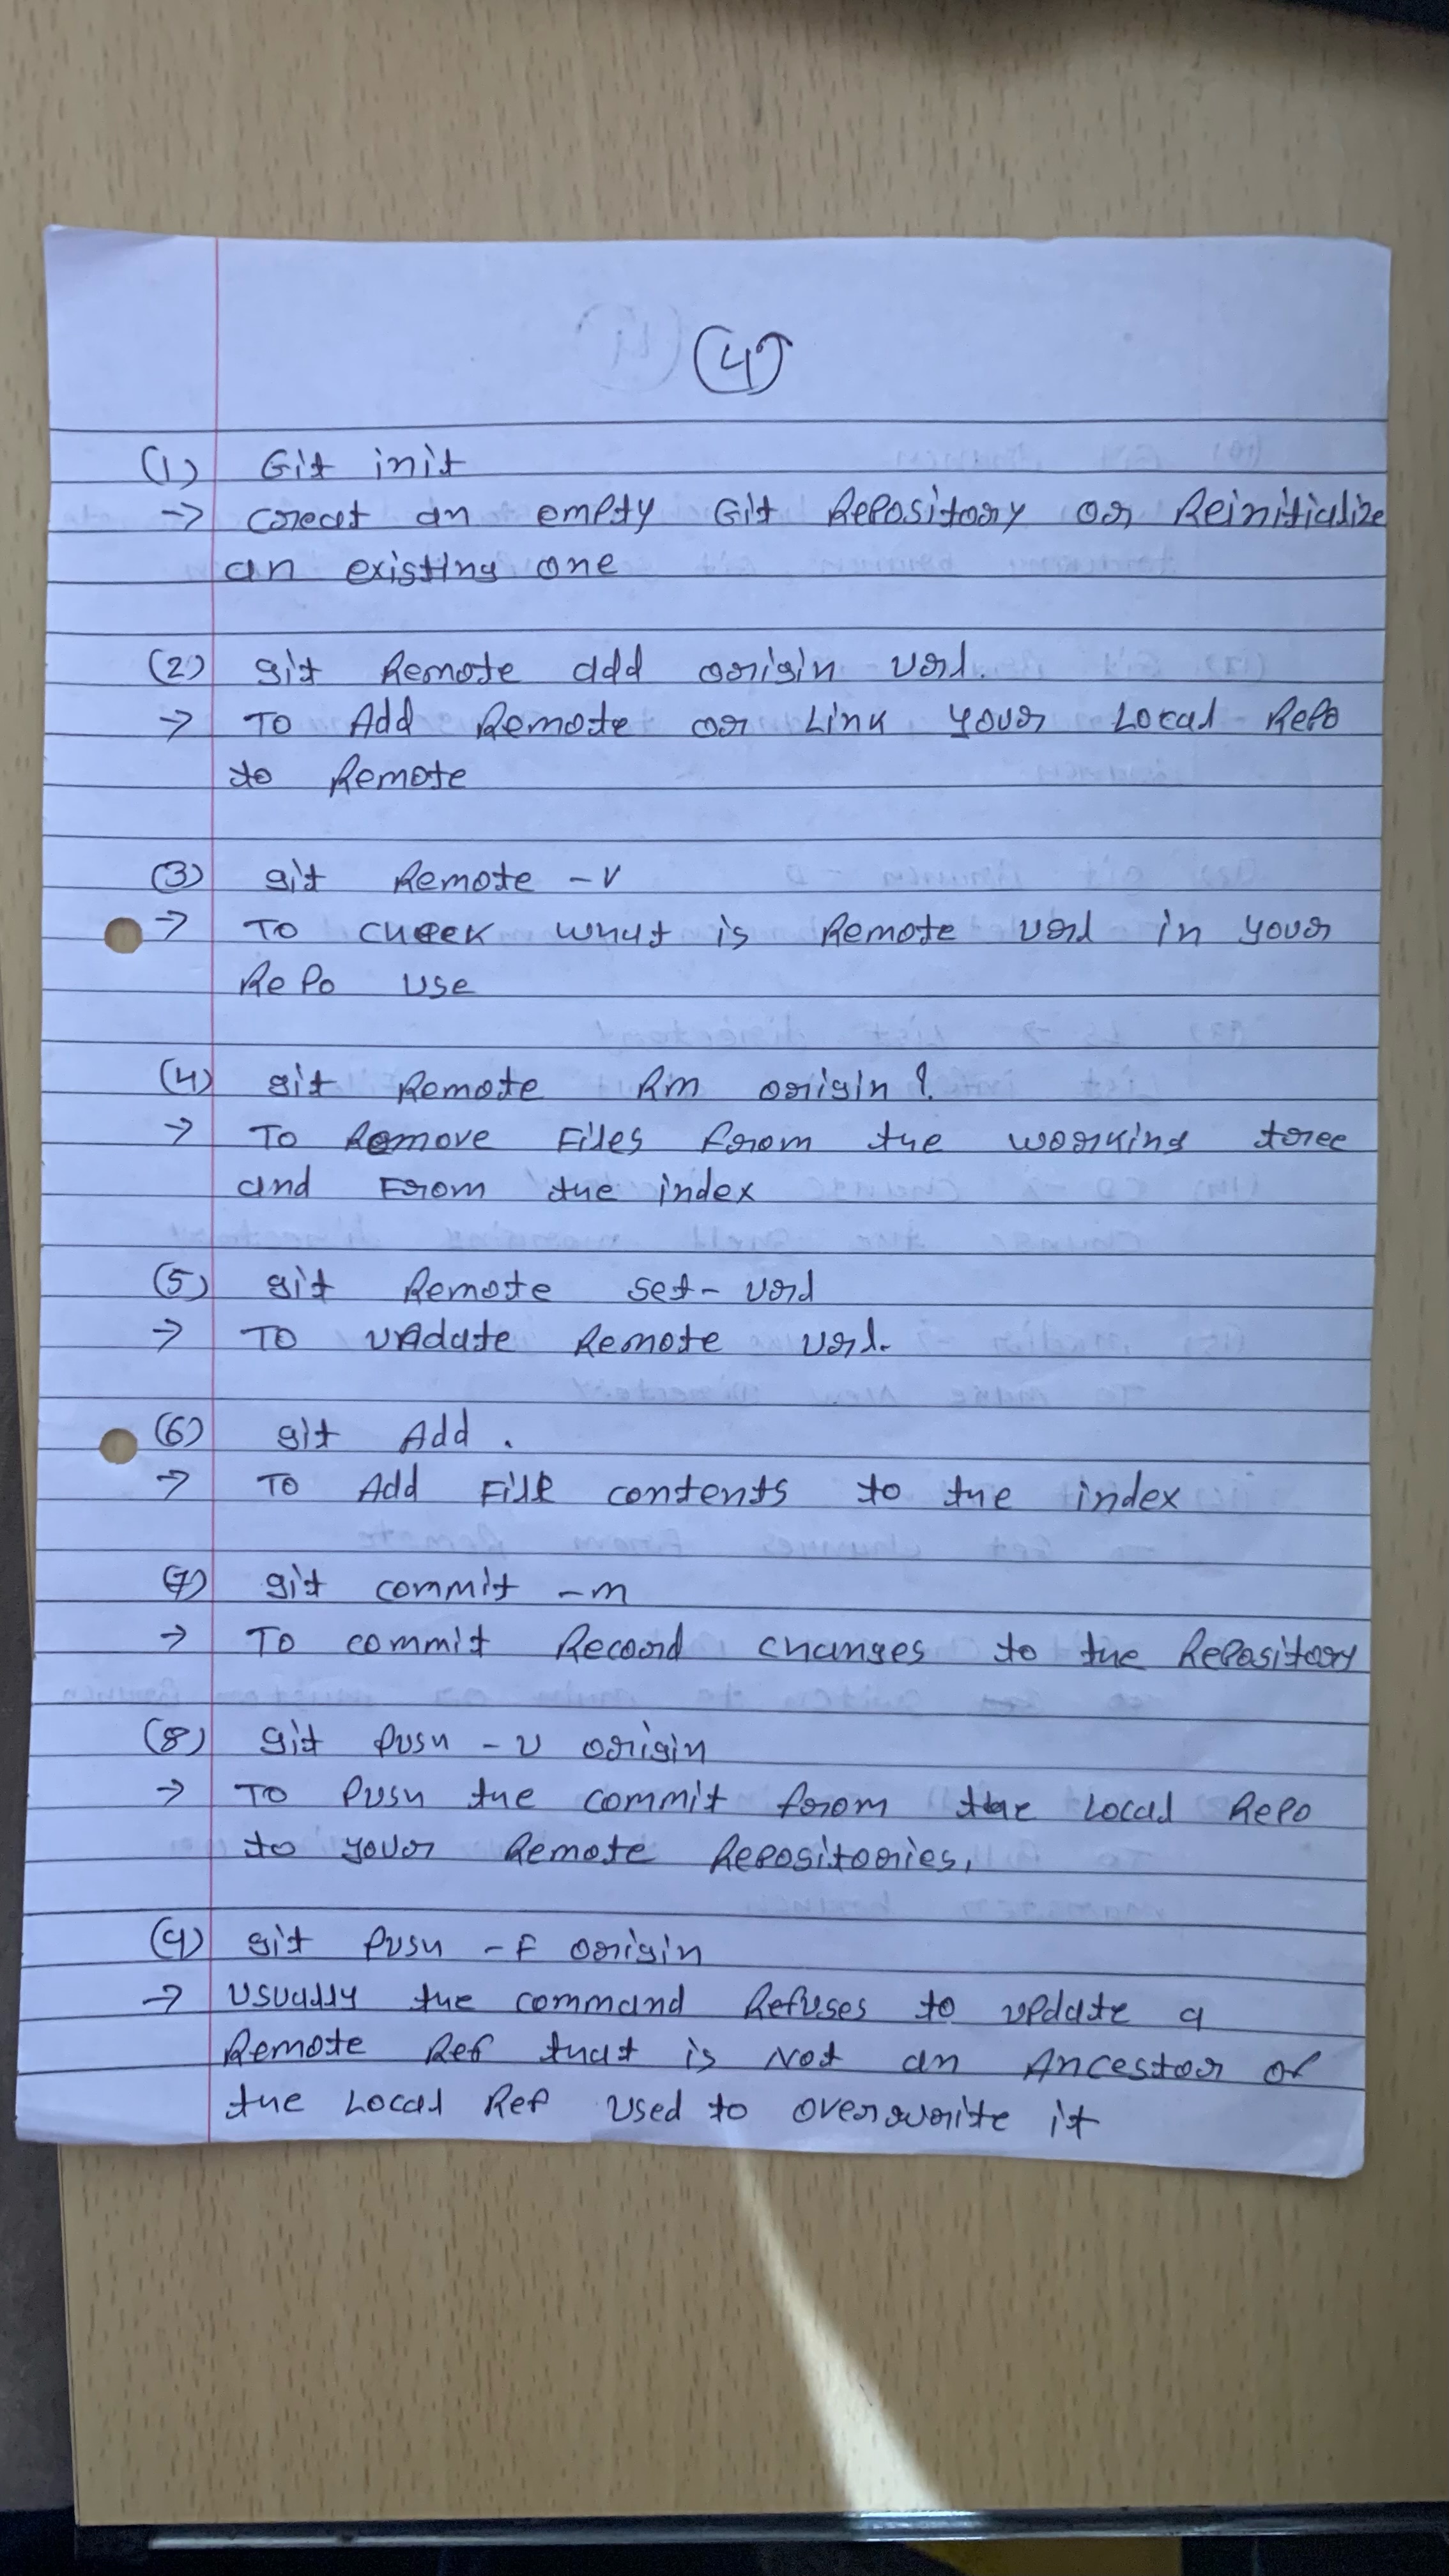 (4)
(1) Git init
→ Creat an empty Git Repository or Reinitialize
an existing one
(2) git Remote add origin url.
→ To Add Remote or Link your Local Repo
to Remote
(3) git Remote -v
→ To check what is Remote url in your
Repo use
(4) git Remote Rm origin ?
→ To Remove Files from the working tree
and From the index
(5) git Remote set-url
→ To update Remote url.
(6) git Add .
→ To Add File contents to the index
(7) git commit -m
→ To commit Record changes to the Repository
(8) git Push -u origin
→ To Push the commit from the Local Repo
to your Remote Repositories,
(9) git Push -F origin
→ Usually the command Refuses to update a
Remote Ref that is Not an Ancestor of
the Local Ref used to overwrite it